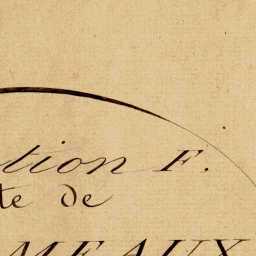 tion F.
te de
MEAUX